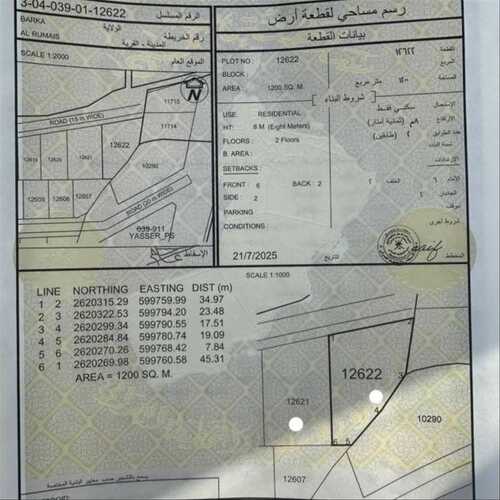 3-04-039-01-12622
الرقم المسلسل
BARKA
الولاية
AL RUMAIS
المدينة - القرية
رقم الخريطة
SCALE 1:2000
الموقع العام
رسم مساحي لقطعة أرض
بيانات القطعة
PLOT NO 12622 ١٢٦٢٢ القطعة
BLOCK : المربع
AREA : 1200 SQ. M. ١٢٠٠ متر مربع المساحة
شروط البناء
USE : RESIDENTIAL سكني فقط الاستعمال
HT: 8 M (Eight Meters) ٨م (ثمانية أمتار) الارتفاع
FLOORS : 2 Floors ٢ (طابقين) عدد الطوابق
B. AREA : نسبة البناء
SETBACKS: الارتدادات
FRONT : 6 BACK : 2 ٢ الخلف : ٦ الأمام
SIDE : 2 ٢ الجانبان
PARKING موقف
CONDITIONS : شروط أخرى
21/7/2025 التاريخ
المخطط
11715
11714
ROAD (15 m WIDE)
12622
12621
10290
12607
ROAD (20 m WIDE)
039-911
YASSER_PS
الإسقاط
SCALE 1:1000
LINE NORTHING EASTING DIST (m)
1 2 2620315.29 599759.99 34.97
2 3 2620322.53 599794.20 23.48
3 4 2620299.34 599790.55 17.51
4 5 2620284.84 599780.74 19.09
5 6 2620270.26 599768.42 7.84
6 1 2620269.98 599760.58 45.31
AREA = 1200 SQ. M.
1
2
12622
3
12621
4
10290
6 5
12607